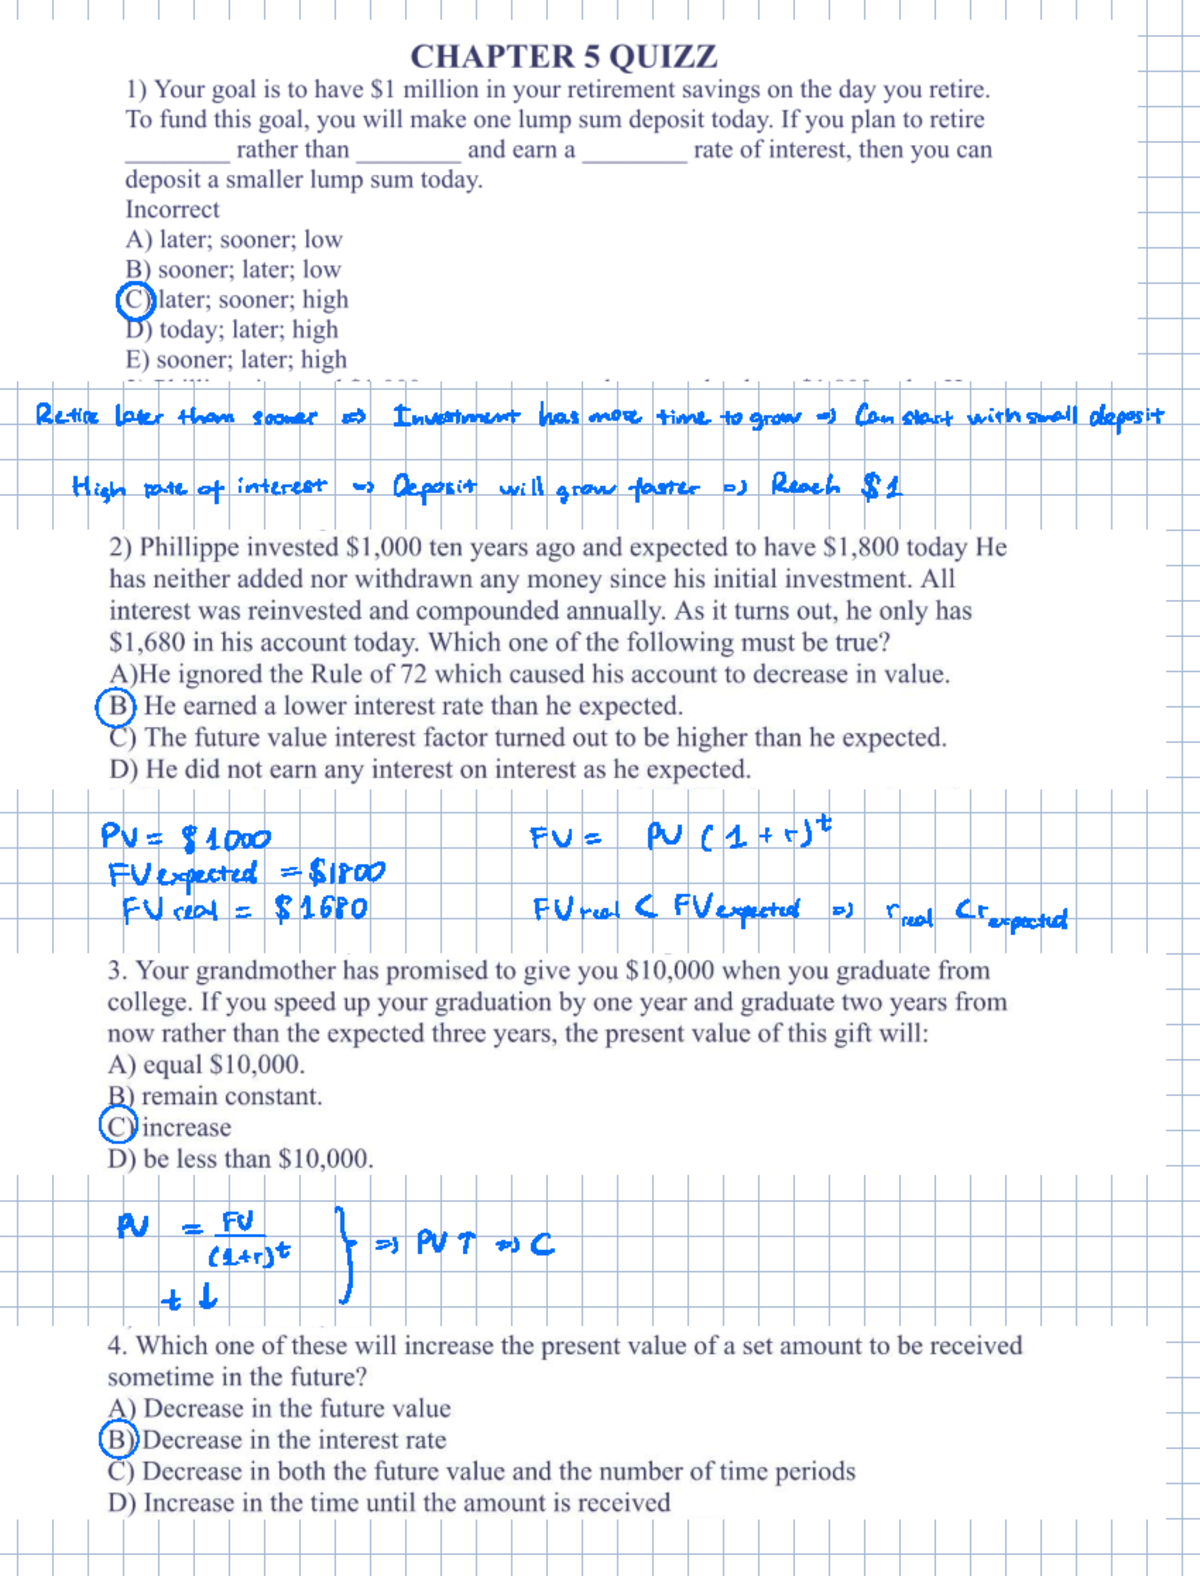 CHAPTER 5 QUIZZ
1) Your goal is to have $1 million in your retirement savings on the day you retire.
To fund this goal, you will make one lump sum deposit today. If you plan to retire
________ rather than ________ and earn a ________ rate of interest, then you can
deposit a smaller lump sum today.
Incorrect
A) later; sooner; low
B) sooner; later; low
C) later; sooner; high
D) today; later; high
E) sooner; later; high
Retire later than sooner => Investment has more time to grow => Can start with small deposit
High rate of interest => Deposit will grow faster => Reach $1
2) Phillippe invested $1,000 ten years ago and expected to have $1,800 today He
has neither added nor withdrawn any money since his initial investment. All
interest was reinvested and compounded annually. As it turns out, he only has
$1,680 in his account today. Which one of the following must be true?
A)He ignored the Rule of 72 which caused his account to decrease in value.
B) He earned a lower interest rate than he expected.
C) The future value interest factor turned out to be higher than he expected.
D) He did not earn any interest on interest as he expected.
PV = $1000 FV = PV (1 + r)^t
FV expected = $1800
FV real = $1680 FV real < FV expected => r real < r expected
3. Your grandmother has promised to give you $10,000 when you graduate from
college. If you speed up your graduation by one year and graduate two years from
now rather than the expected three years, the present value of this gift will:
A) equal $10,000.
B) remain constant.
C) increase
D) be less than $10,000.
PV = FV / (1+r)^t } => PV ↑ => C
t ↓
4. Which one of these will increase the present value of a set amount to be received
sometime in the future?
A) Decrease in the future value
B) Decrease in the interest rate
C) Decrease in both the future value and the number of time periods
D) Increase in the time until the amount is received